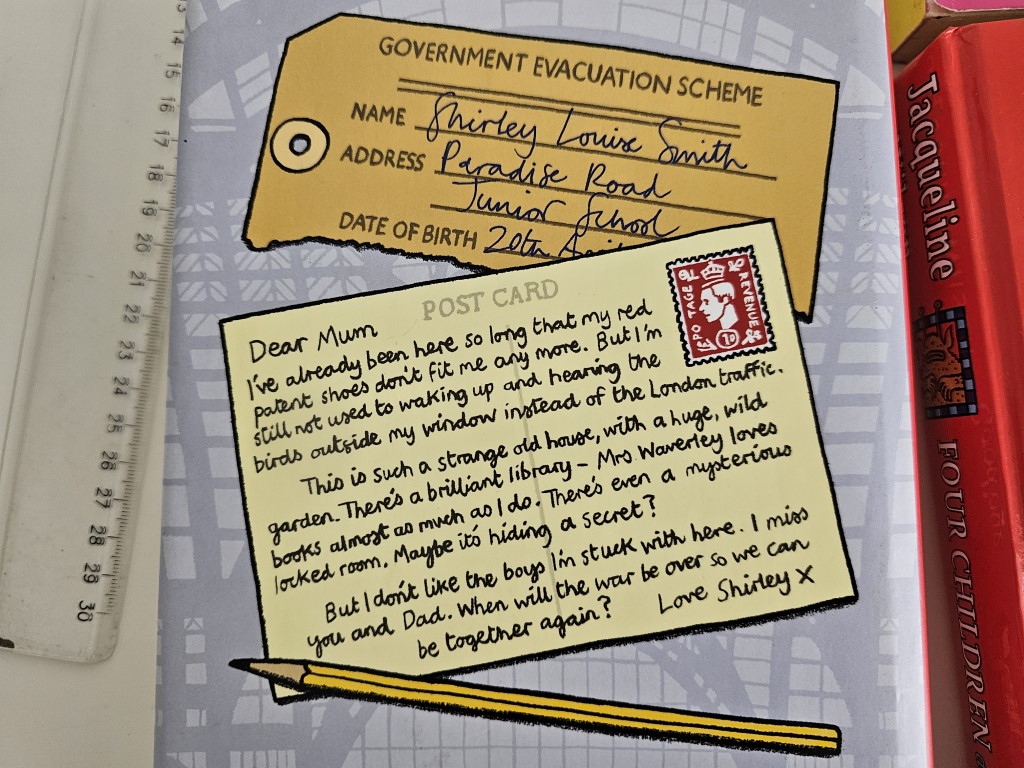 GOVERNMENT EVACUATION SCHEME
NAME Shirley Louise Smith
ADDRESS Paradise Road
Junior School
DATE OF BIRTH 20th
POST CARD
POSTAGE REVENUE
1D
Dear Mum
I've already been here so long that my red
patent shoes don't fit me any more. But I'm
still not used to waking up and hearing the
birds outside my window instead of the London traffic.
This is such a strange old house, with a huge, wild
garden. There's a brilliant library – Mrs Waverley loves
books almost as much as I do. There's even a mysterious
locked room. Maybe it's hiding a secret?
But I don't like the boys I'm stuck with here. I miss
you and Dad. When will the war be over so we can
be together again?
Love Shirley X
14
15
16
17
18
19
20
21
22
23
24
25
26
27
28
29
30
Jacqueline
FOUR CHILDREN